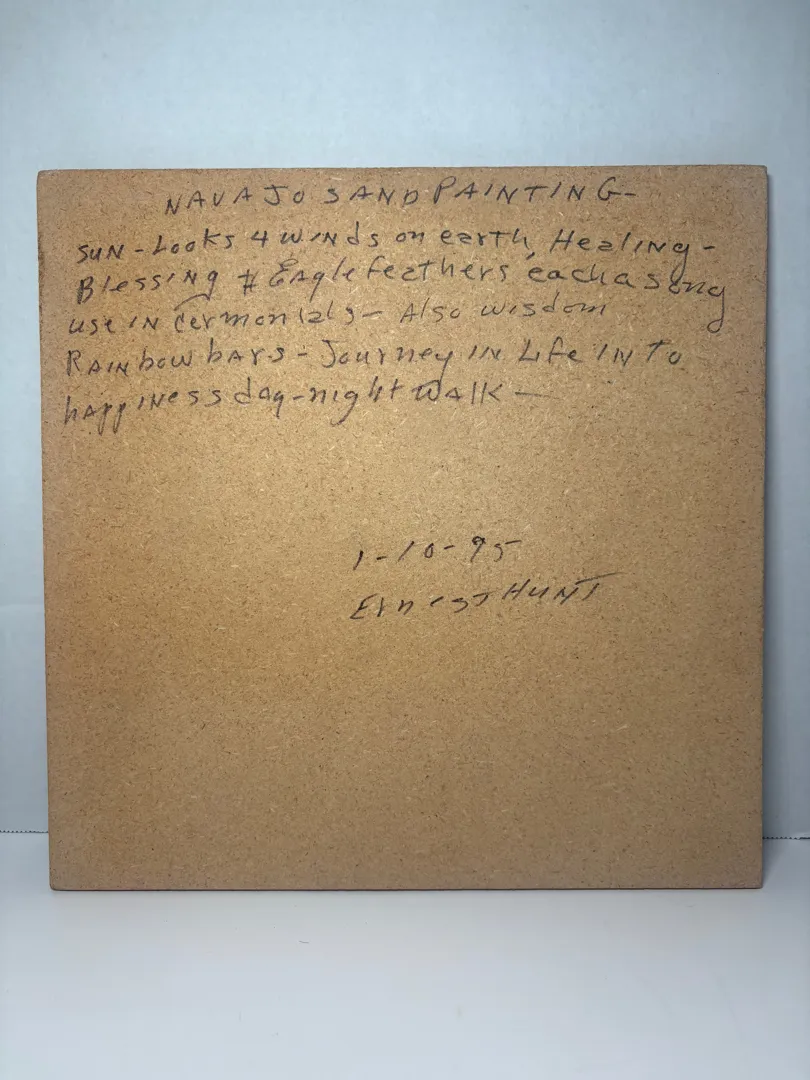 NAVAJO SAND PAINTING-
SUN - Looks 4 WINds on earth, Healing -
Blessing # Eagle feathers, each a song
use IN Cermonials - Also wisdom
RAINbow bars - Journey IN Life INTo
happINess day-night WAlK -
1-10-95
Ernest HUNT